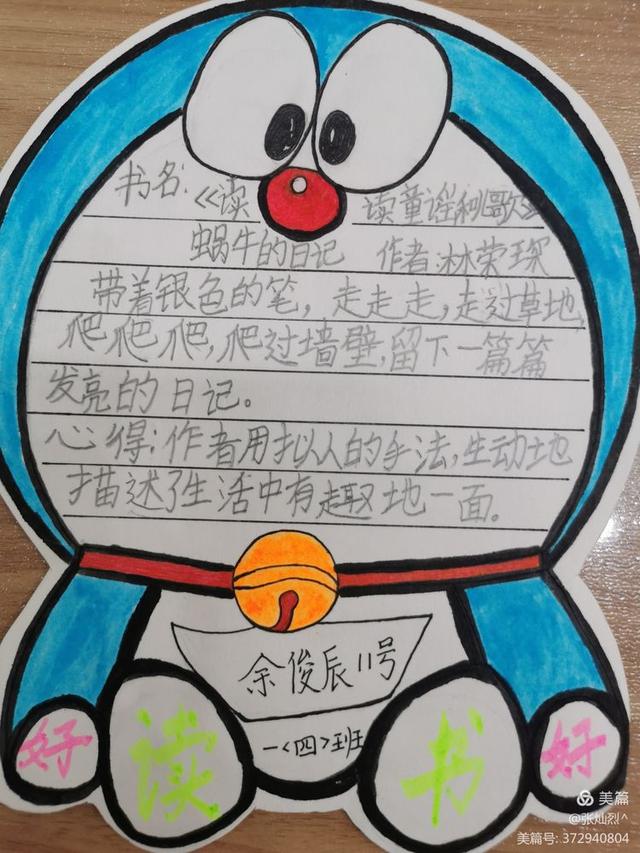 书名:《读 读童谣和歌》
蜗牛的日记 作者:林荣琛
带着银色的笔，走走走，走过草地
爬爬爬，爬过墙壁，留下一篇篇
发亮的日记。
心得:作者用拟人的手法，生动地
描述了生活中有趣地一面。
余俊辰11号
一<四>班
好读书好
美篇
@张灿烈^
美篇号: 372940804